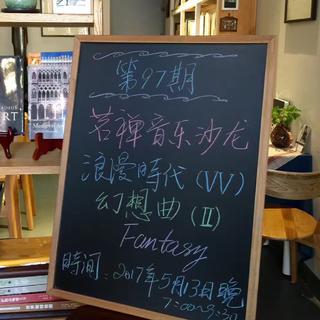 第97期
茗禅音乐沙龙
浪漫時代(VV)
幻想曲(II)
Fantasy
時间:2017年5月13日晚
7:00~9:30
ART